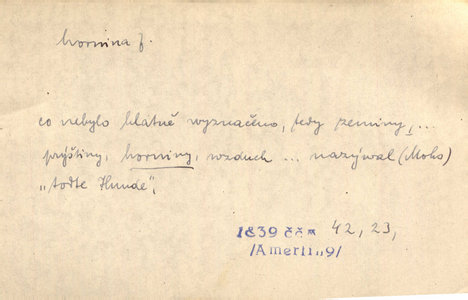 hornina f.
co nebylo hlatně wyznačeno, tedy zeminy, ...
prýštiny, horniny, wzduch ... nazýwal (Mohs)
„todte Hunde",
1839 ččm 42, 23,
/Amerling/